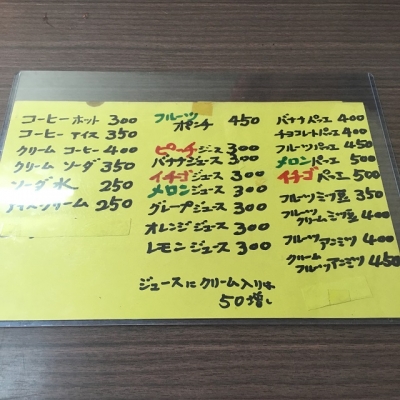 コーヒーホット 300
コーヒーアイス 350
クリームコーヒー 400
クリームソーダ 350
ソーダ水 250
アイスクリーム 250
フルーツ
ポンチ 450
ピーチジュース 300
バナナジュース 300
イチゴジュース 300
メロンジュース 300
グレープジュース 300
オレンジジュース 300
レモンジュース 300
ジュースにクリーム入りは
50増し
バナナパーエ 400
チョコレートパーエ 400
フルーツパーエ 450
メロンパーエ 500
イチゴパーエ 500
フルーツミツ豆 350
フルーツ
クリームミツ豆 400
フルーツアンミツ 400
クリーム
フルーツアンミツ 450